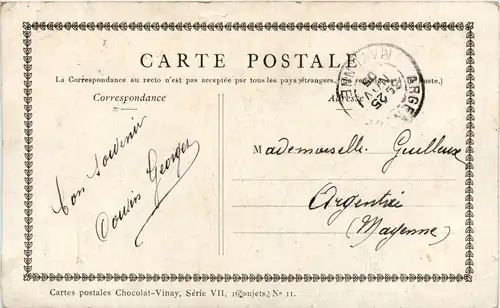 CARTE POSTALE
La Correspondance au recto n'est pas acceptée par tous les pays étrangers. poste,)
Correspondance
Adresse
MAYENNE
25
Bon souvenir
Cousin Georges
Mademoiselle Guilleux
Argentré
(Mayenne)
Cartes postales Chocolat-Vinay, Série VII, 16 sujets, N° 11.